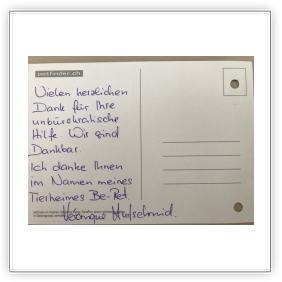 petfinder.ch
Vielen herzlichen
Dank für Ihre
unbürokratische
Hilfe. Wir sind
Dankbar.
Ich danke Ihnen
im Namen meines
Tierheimes Be-Pet.
Véronique